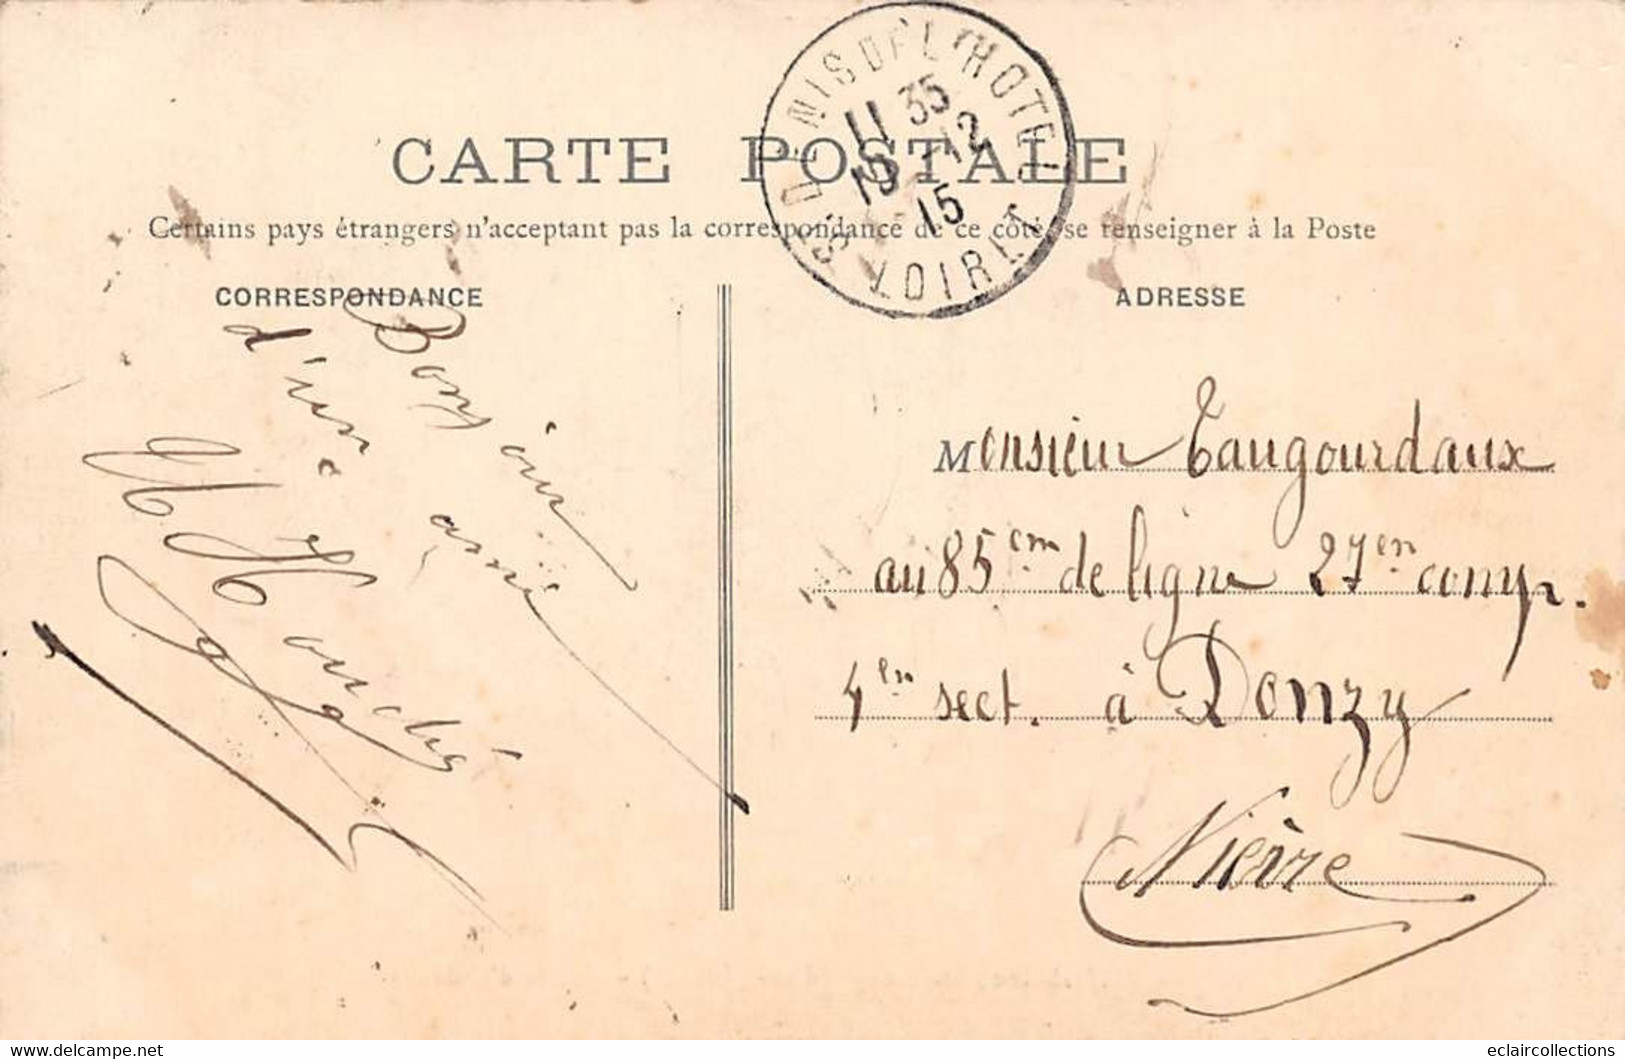 CARTE POSTALE
Certains pays étrangers n'acceptant pas la correspondance de ce côté, se renseigner à la Poste
ST DENIS DE L'HOTEL
11 35
15 -12
15
LOIRET
CORRESPONDANCE
Bonjour
d'une amie
ADRESSE
Monsieur Taugourdaux
au 85em de ligne 27en comp.
4en sect. à Donzy
Nièvre
www.delcampe.net
eclaircollections